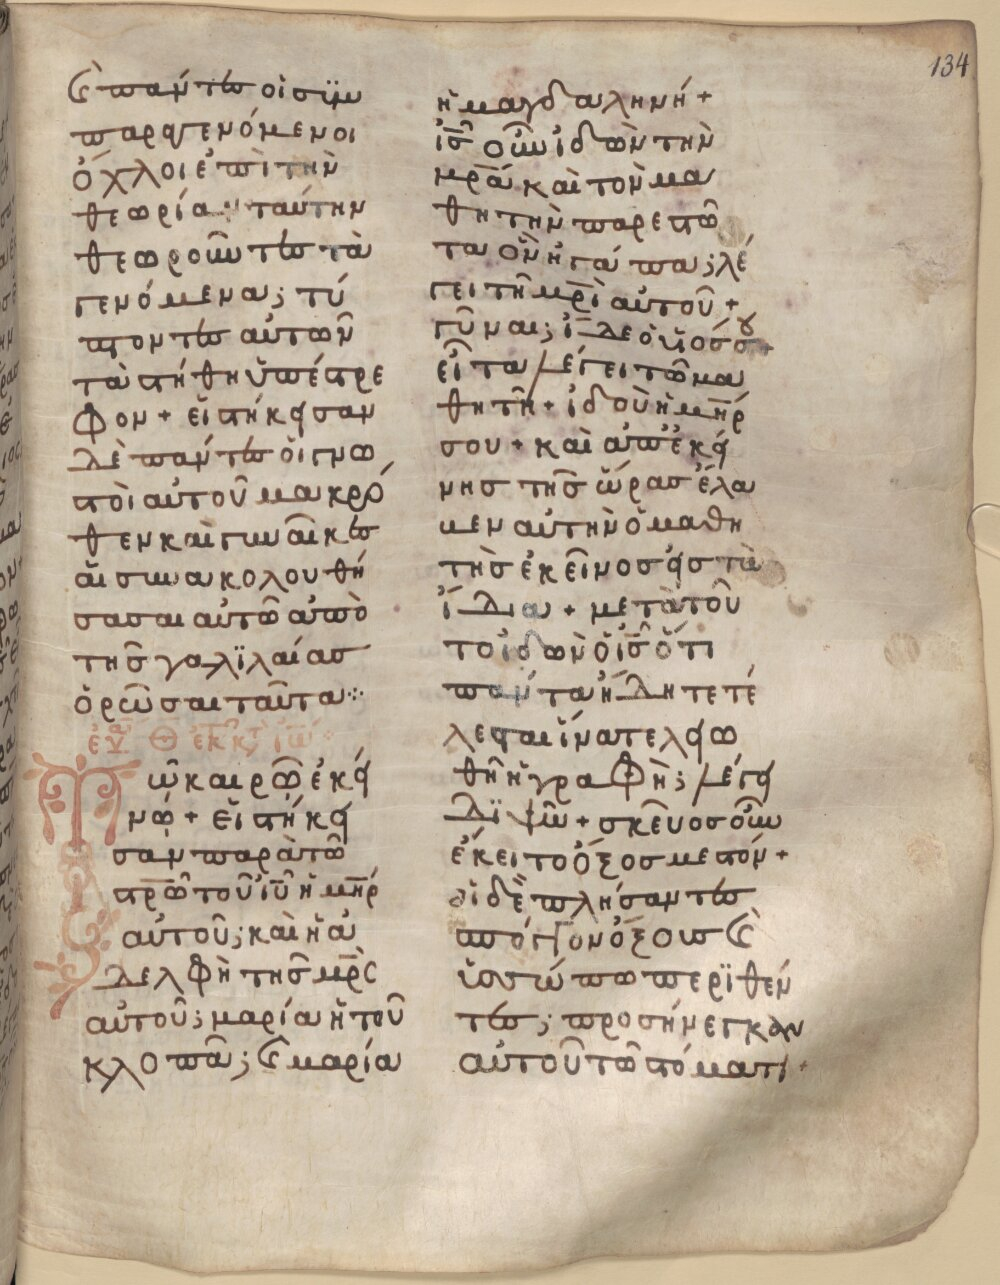 134
ϗ̀ πάντες οἱ συμ
παραγενόμενοι
ὄχλοι ἐπὶ τὴν
θεωρίαν ταύτην
θεωροῦντες τὰ
γενόμενα; τύ
πτοντες αὐτῶν
τὰ στήθη ὑπέστρε
φον + εἱστήκεισαν
δὲ πάντες οἱ γνω
στοὶ αὐτοῦ μακρό
θεν καὶ γυναῖκες
αἱ συνακολουθή
σασαι αὐτῶ ἀπὸ
τῆς γαλϊλαίας
ὁρῶσαι ταῦτα
Τῶ καιρῶ ἐκεί
νω + εἱστήκει
σαν παρὰ τῶ
στρῶ τοῦ ἰῦ ἡ μηρ
αὐτοῦ; καὶ ἡ ἀ
δελφὴ τῆς μρς
αὐτοῦ; μαρία ἡ τοῦ
κλοπᾶ; ϗ μαρία
ἡ μαγδαληνή +
ἰς οὖν ἰδὼν τὴν
μρα καὶ τὸν μα
θητὴν παρεστῶ
τα ὃν ἠγάπα; λέ
γει τῆ μρι αὐτοῦ +
γύναι; ἴδε ὁ υἱός σου +
εἶτα λέγει τῶ μα
θητῆ + ἰδοὺ ἡ μηρ
σου + καὶ ἀπ' ἐκεί
νης τῆς ὥρας ἔλα
βεν αὐτὴν ὁ μαθη
τὴς ἐκεῖνος εἰς τὰ
ἴδια + μετὰ τοῦ
το ἰδὼν ὁ ἰς ὅτι
πάντα ἤδη τετέ
λεσται ἵνα τελειω
θῆ ἡ γραφὴ; λέγει
διψῶ + σκεῦος οὖν
ἔκειτο ὄξος μεστόν +
οἱ δὲ πλήσαντες
σπόγγον ὄξους ϗ̀
ὑσσώπω περϊθέν
τες; προσήνεγκαν
αὐτοῦ τῶ στόματι +